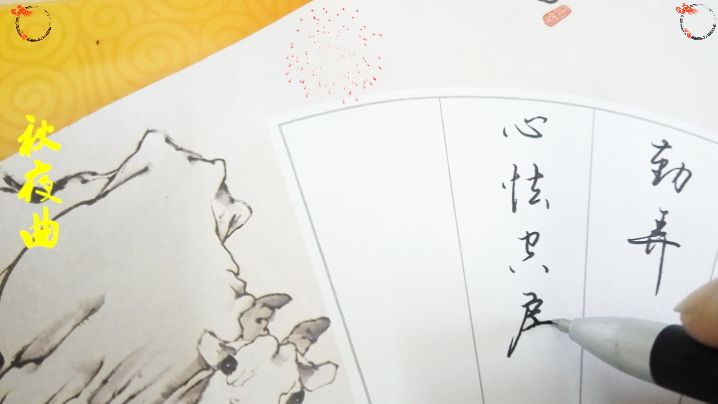 秋夜曲
勤弄
心怯空房